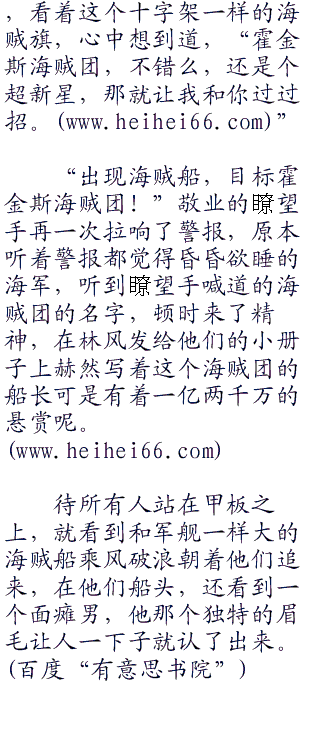 ，看着这个十字架一样的海
贼旗，心中想到道，“霍金
斯海贼团，不错么，还是个
超新星，那就让我和你过过
招。(www.heihei66.com)”
“出现海贼船，目标霍
金斯海贼团！”敬业的瞭望
手再一次拉响了警报，原本
听着警报都觉得昏昏欲睡的
海军，听到瞭望手喊道的海
贼团的名字，顿时来了精
神，在林风发给他们的小册
子上赫然写着这个海贼团的
船长可是有着一亿两千万的
悬赏呢。
(www.heihei66.com)
待所有人站在甲板之
上，就看到和军舰一样大的
海贼船乘风破浪朝着他们追
来，在他们船头，还看到一
个面瘫男，他那个独特的眉
毛让人一下子就认了出来。
(百度“有意思书院”)